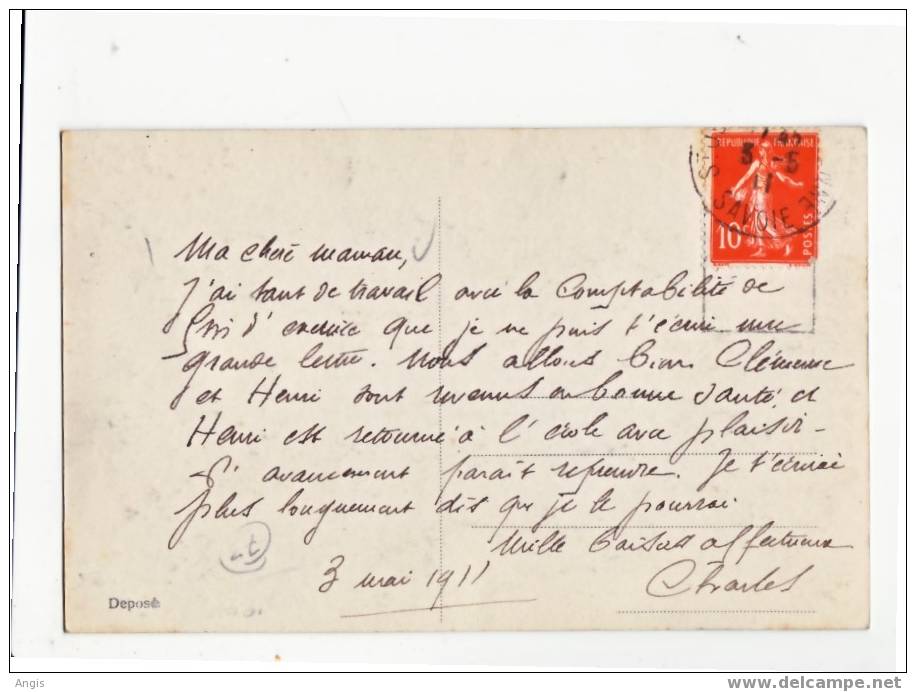 RÉPUBLIQUE FRANÇAISE
3 -5
11
SAVOIE
10
POSTES
Ma chère maman,
J'ai tant de travail avec la comptabilité de
fin d'exercice que je ne puis t'écrire une
grande lettre. Nous allons bien. Clémence
et Henri sont revenus en bonne santé et
Henri est retourné à l'école avec plaisir -
L'avancement paraît reprendre. Je t'écrirai
plus longuement dès que je le pourrai
Mille baisers affectueux
3 mai 1911
Charles
Deposé
Angis
www.delcampe.net